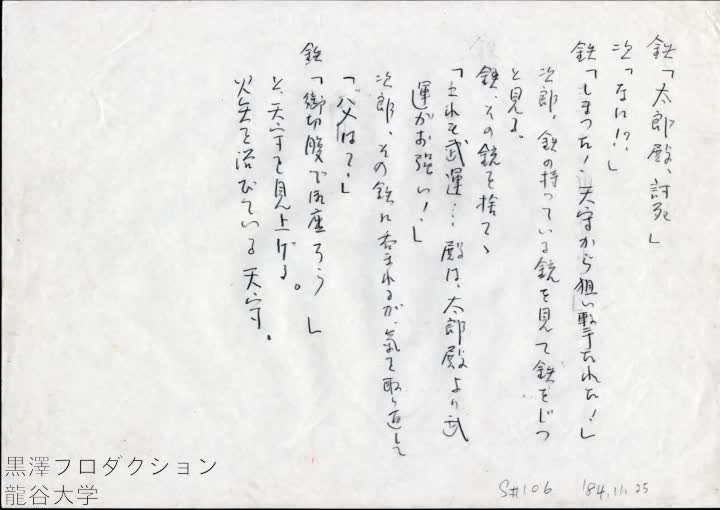 鉄「太郎殿、討死」
次「なに!?」
鉄「しまった!、天守から狙い撃たれた!」
次郎、鉄の持っている銃を見て鉄をじっ
と見る。
鉄、その銃を捨て、
「それも武運… 殿は、太郎殿より武
運がお強い!」
次郎、その鉄に呑まれるが、気を取り直して
「父は?」
鉄「御切腹で御座ろう」
と、天守を見上げる。
火矢を浴びている天守。
S#106 '84.11.25
黒澤プロダクション
龍谷大学